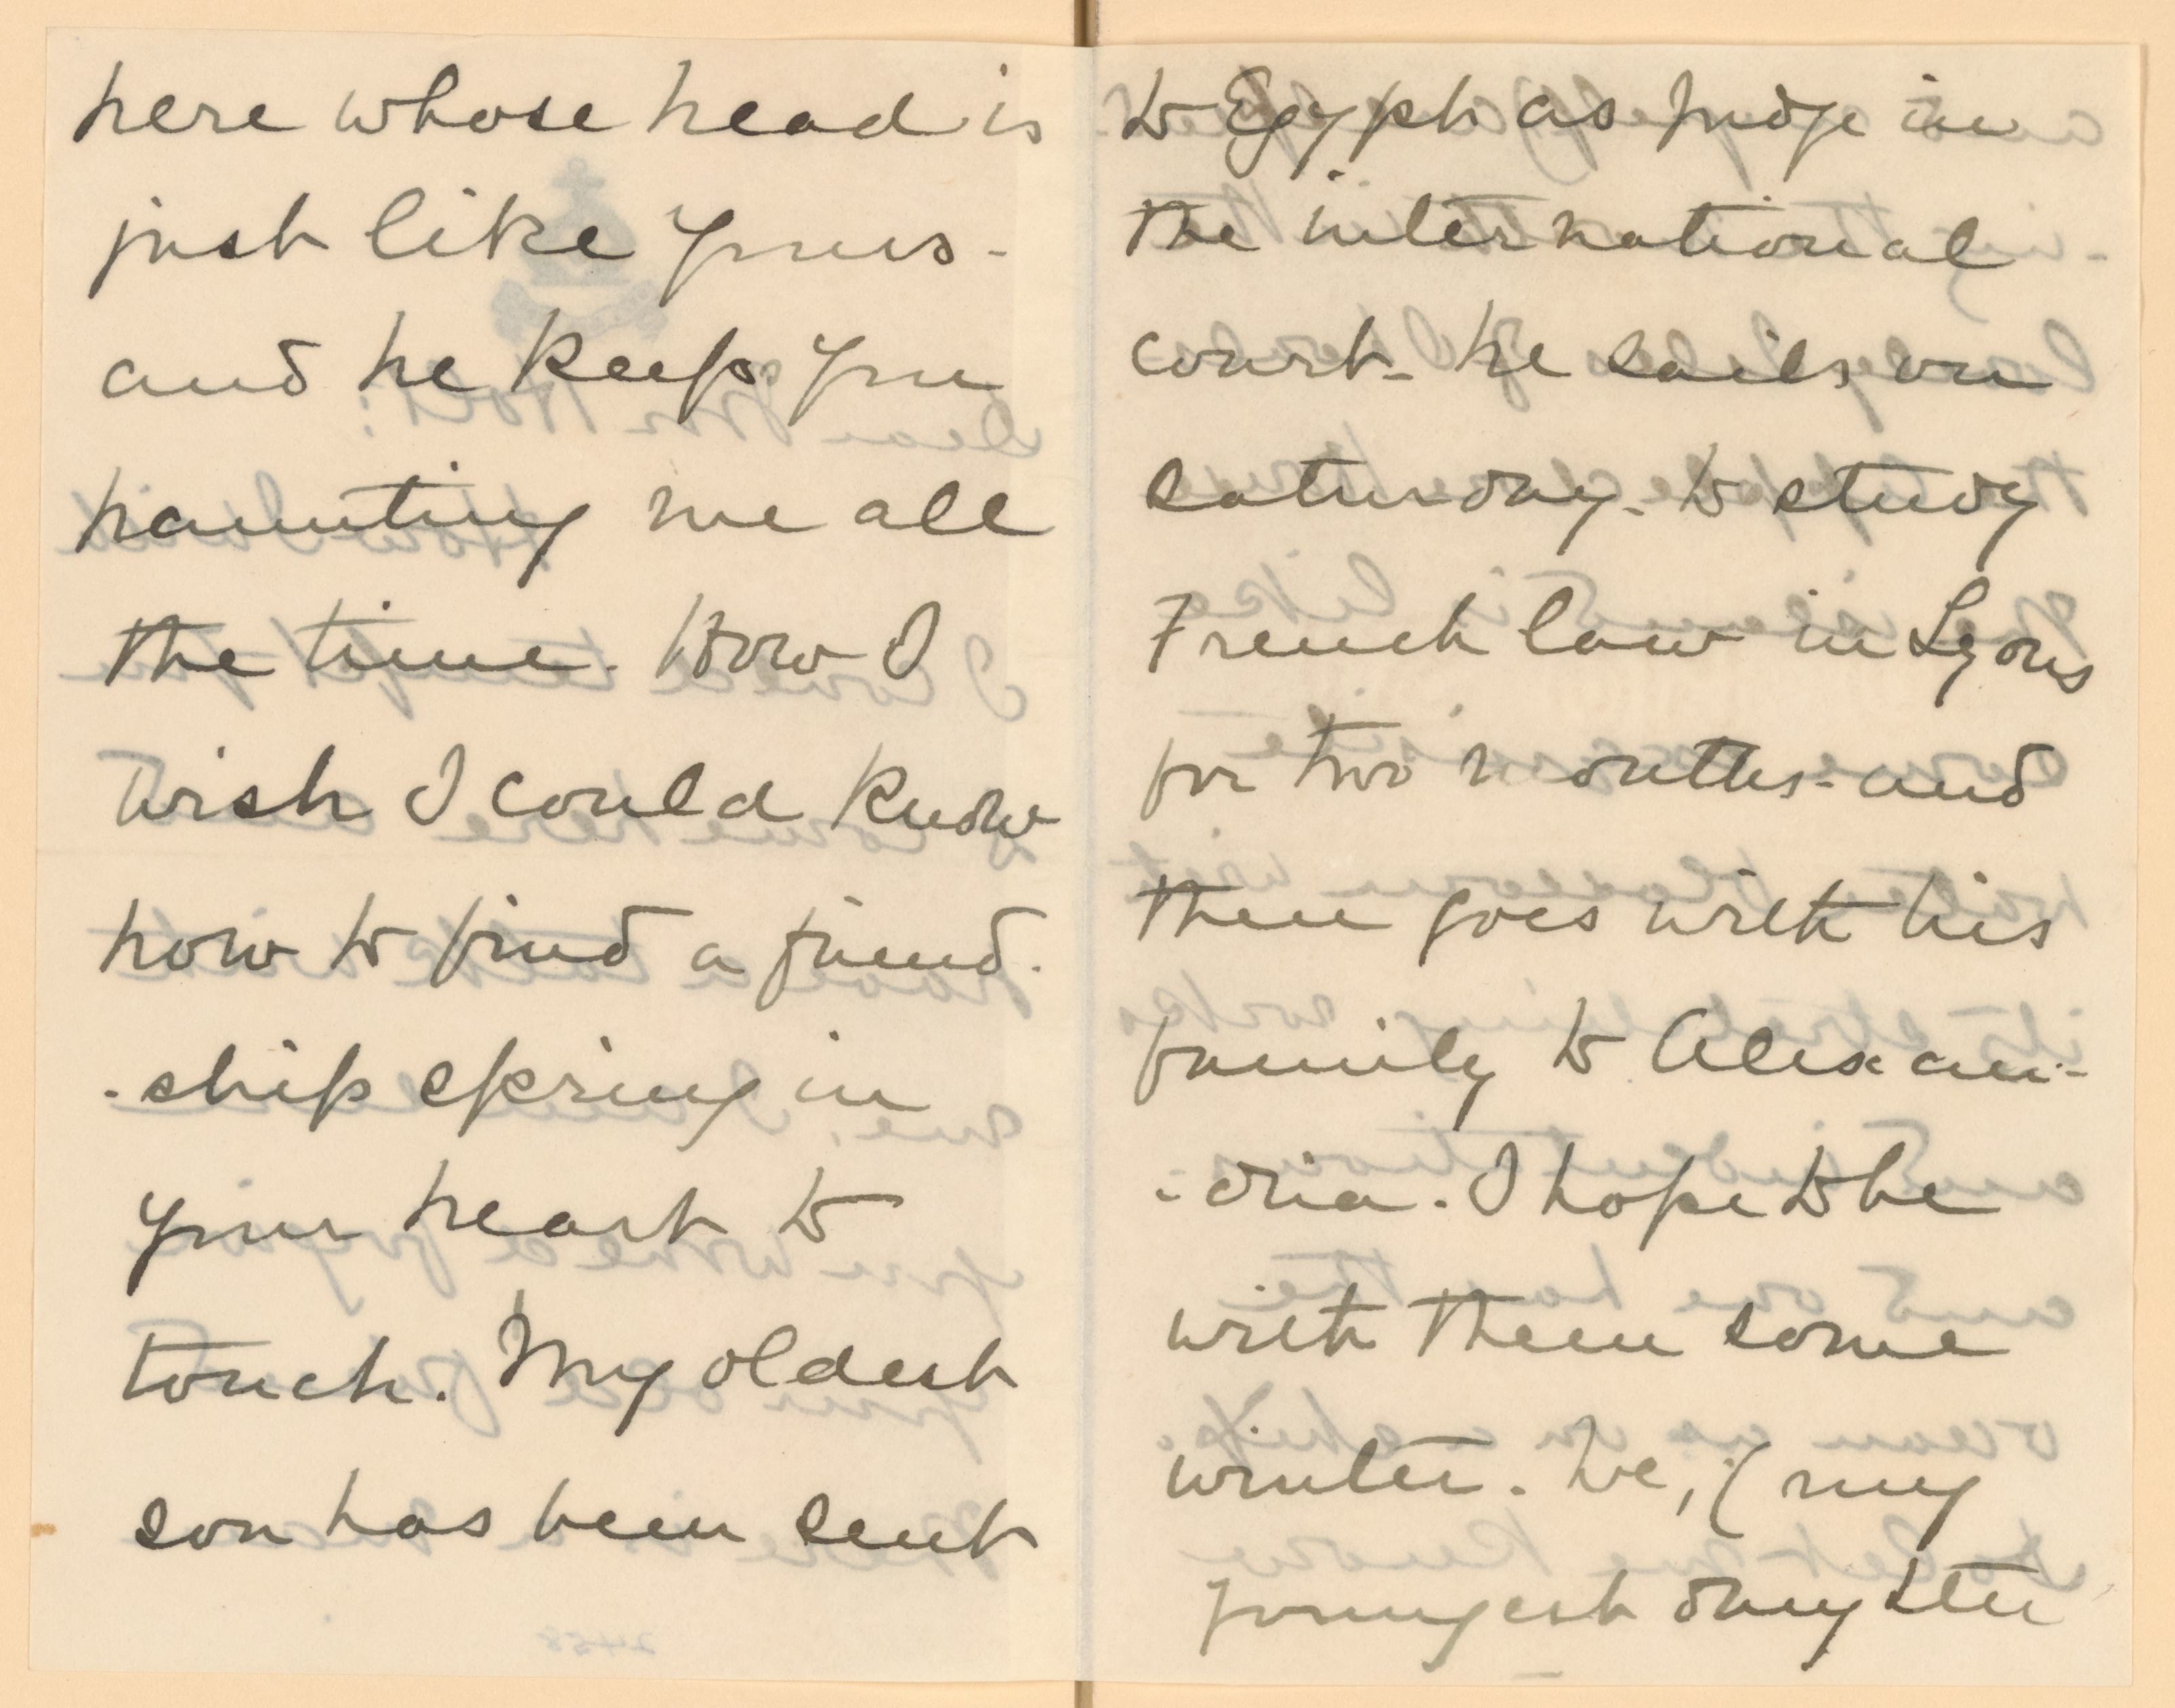 here whose head is
just like yours -
and he keeps you
haunting me all
the time. How I
wish I could know
how to find a friend.
- ship spring in
your heart to
touch. My oldest
son has been sent
to Egypt as Judge in
the international
court - he sails on
saturday. to study
French law in Lyons
for two months - and
then goes with his
family to Alexan -
- dria. I hope to be
with them some
winter. We, (my
youngest daughter